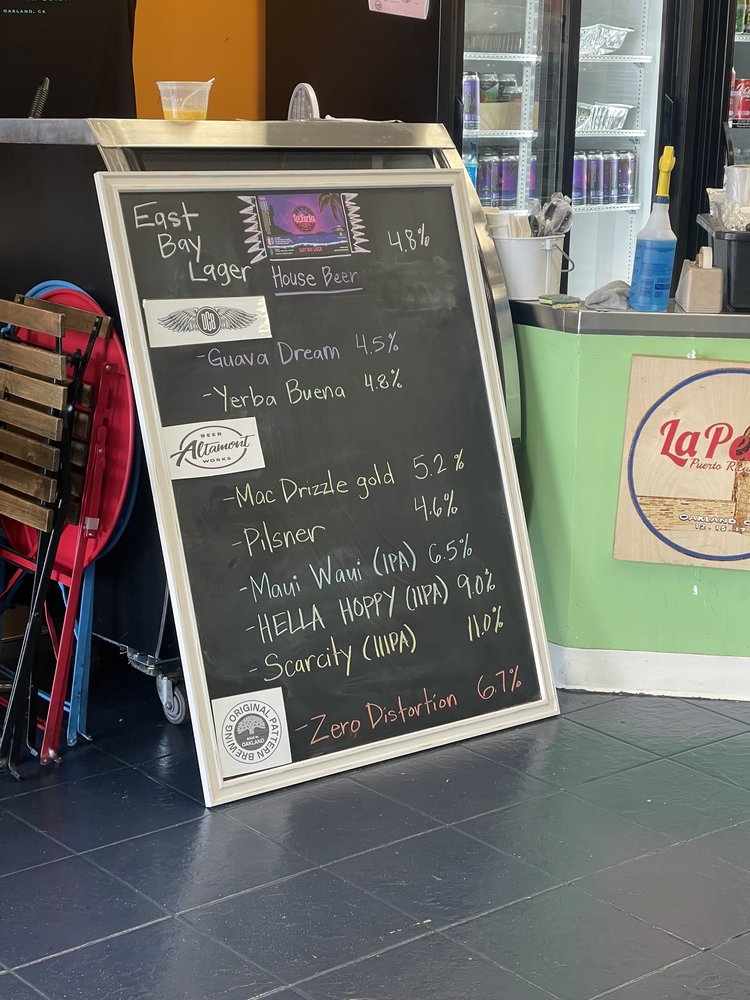 OAKLAND, CA
East
Bay
Lager
La Perla
4.8%
House Beer
DCB
-Guava Dream 4.5%
-Yerba Buena 4.8%
BEER
Altamont
WORKS
-Mac Drizzle gold 5.2%
-Pilsner 4.6%
-Maui Waui (IPA) 6.5%
-HELLA HOPPY (IIPA) 9.0%
-Scarcity (IIIPA) 11.0%
ORIGINAL PATTERN BREWING
OAKLAND
-Zero Distortion 6.7%
La Pe
Puerto Ri
OAKLAND, C